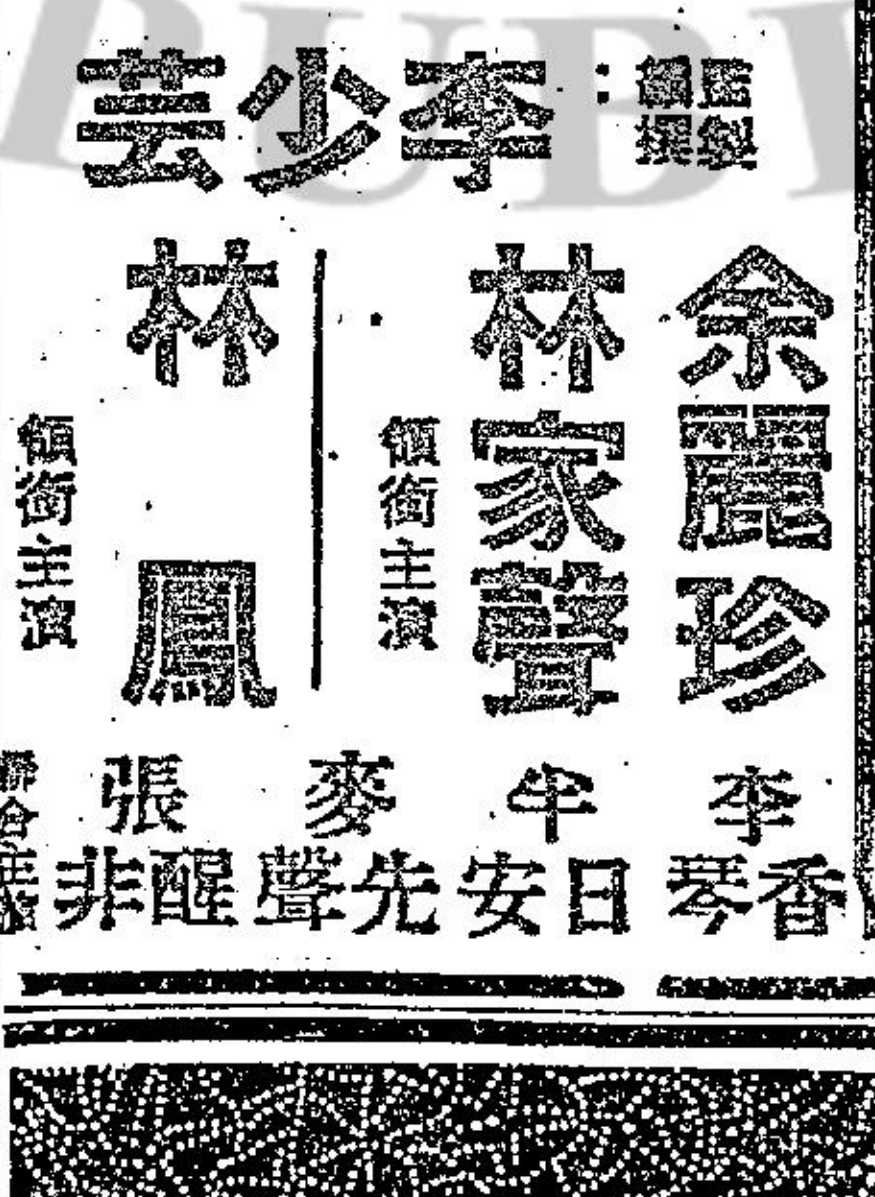 監製
編撰：李少芸
余麗珍
林家聲
領銜主演
林鳳
領銜主演
李香琴
半日安
麥先聲
張醒非
聯合主演